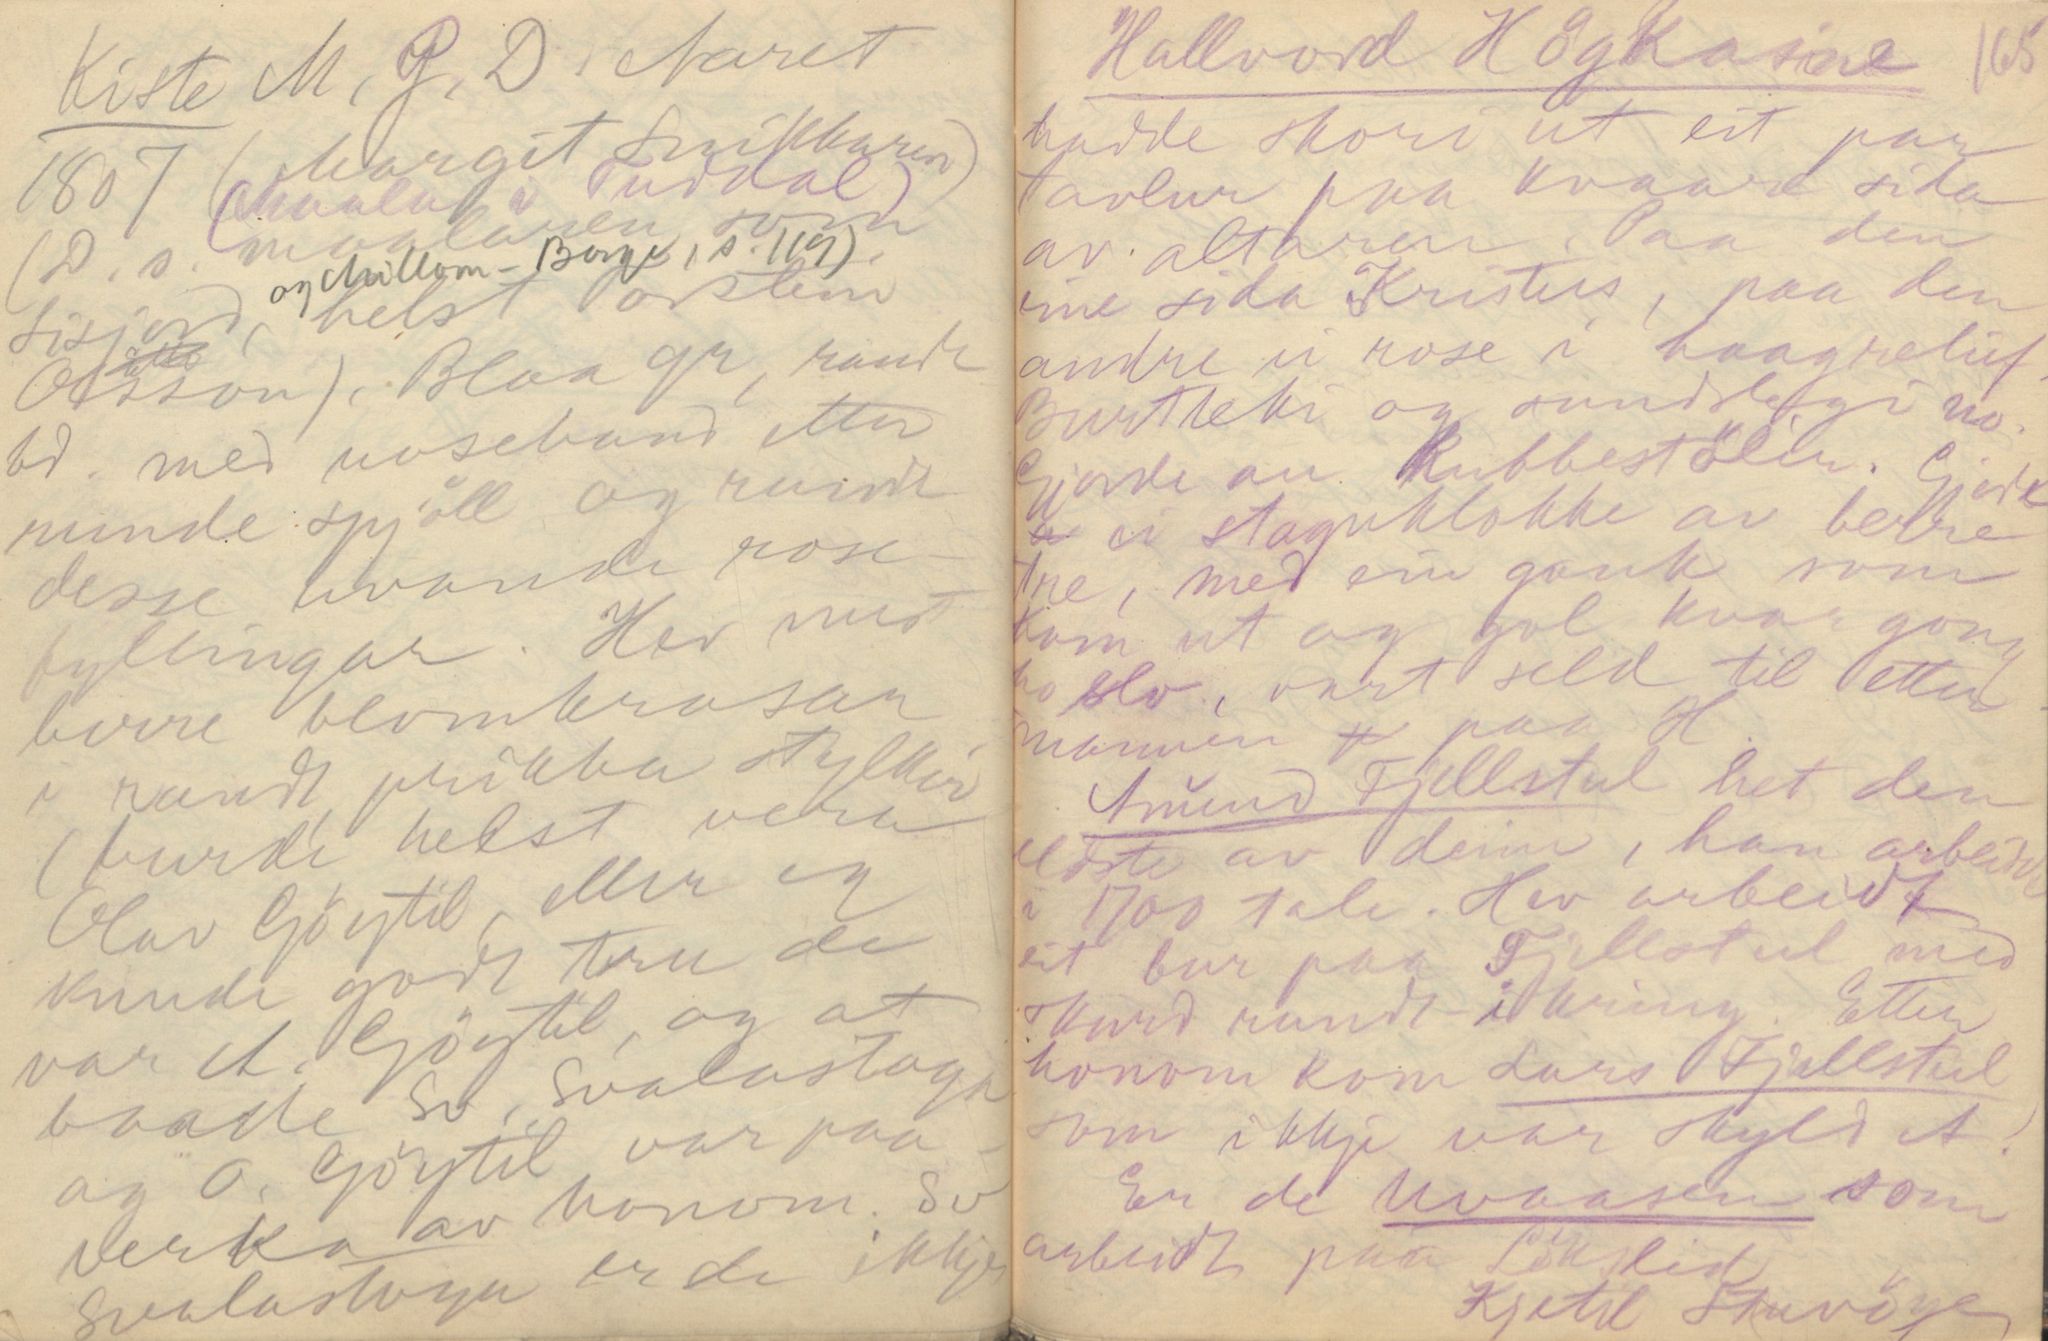 Kiste M. G. D. Aaret
1807 (Margit Snikkaren)
(Maala i Tuddal)
(D. s. maalaren som
og Millom-Borge, s. 119)
Lisjord, helst Torstein
Olsson). Blaa gr, raudt
bd. med roseband etter
runde spjöll og raudt
desse uvande rose-
fyllingar. Her mest
berre blomkrasar
i raudt prikka stykkir
(burde helst vera
Olav Göytil, eller eg
kunde godt tru de
var A. Göytil, og at
baade Sv. Svalastoga
og O. Göytil var paa-
verka av honom. Sv
Svalastoga er de ikkje
165
Hallvord Högkasine
hadde skori ut eit par
tavlur paa kvaare sida
av altaren. Paa den
eine sida Kristus, paa den
andre ei rose i haagrelief.
Burtteki og sundslegi no.
Gjorde au Kubbestölar. Gjorde
ei staguklokke av berre
tre, med ein gauk som
kom ut og gol kvar gong
ho slo, vart seld til etter-
mannen paa H.
Amund Fjellstul het den
eldste av deim, han arbeidde
i 1700 tale. Hev arbeidt
eit bur paa Fjellstul med
skurd rundt ikring. Etter
honom kom Lars Fjellstul
som ikkje var skyld A!
Er de Uvaasen som
arbeidt paa Lökslid
Kjetil Stuvöye